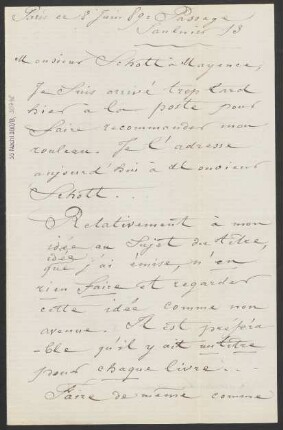 Paris ce 2 Juin 69 Passage
Saulnier 13
Monsieur Schott à Mayence,
Je suis arrivé trop tard
hier à la poste pour
faire recommander mon
rouleau. Je l'adresse
aujourd'hui à Monsieur
Schott..
Relativement à mon
idée au Sujet du titre,
idée
que j'ai émise, n'en
rien faire et regarder
cette idée comme non
avenue. Il est préféra
-ble qu'il y ait un titre
pour chaque livre...
Faire de même comme